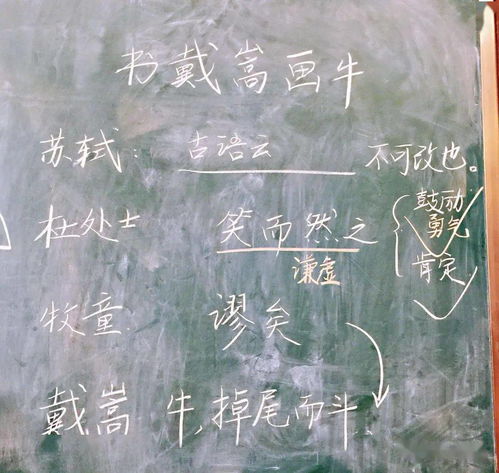 书戴嵩画牛
苏轼：古语云 不可改也。
杜处士 笑而然之 鼓励 勇气
谦虚 肯定
牧童 谬矣
戴嵩 牛，掉尾而斗